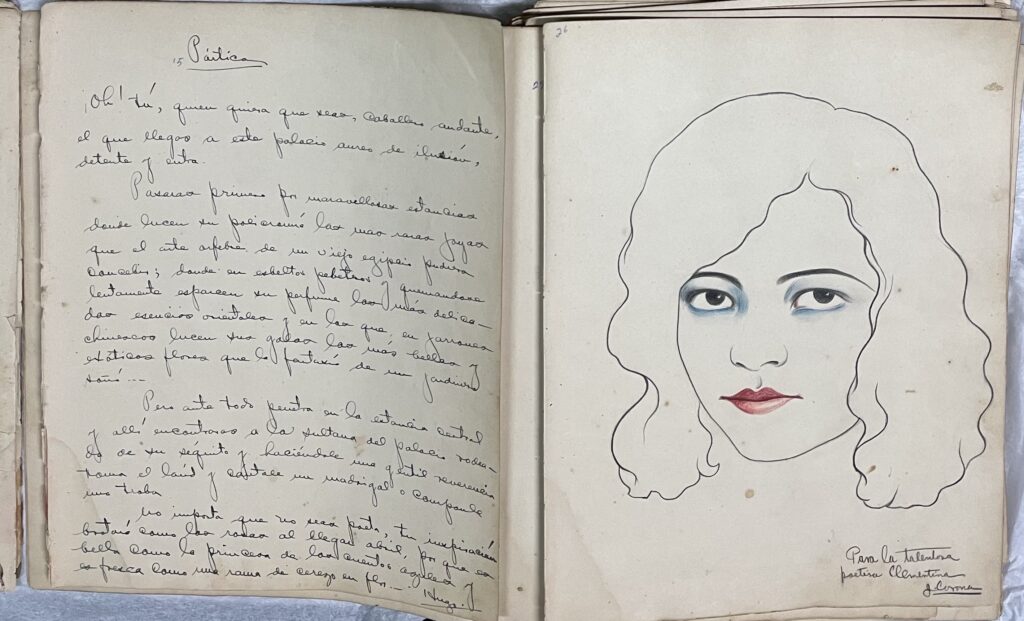 15 Pórtico
¡Oh! tú, quien quiera que seas, caballero andante,
el que llegas a este palacio aureo de ilusión,
detente y entra.
Pasaras primero por maravillosas estancias
donde lucen su policromía las mas raras joyas
que el arte orfebre de un viejo egipcio pudiera
concebir; donde en esbeltos pebeteros y quemandose
lentamente esparcen su perfume las más delica-
das esencias orientales y en las que, en jarrones
chinescos lucen sus galas las más bellas y
exóticas flores que la fantasía de un jardinero
soñó...
Pero ante todo penetra en la estancia central
y allí encontraras a la sultana del palacio rodea-
da de su séquito y haciéndole una gentil reverencia
toma el laúd y cantale un madrigal o componle
una trova
No importa que no seas poeta, tu inspiración
brotará como las rosas al llegar abril, por que es
bella como la princesa de los cuentos azules y
es fresca como una rama de cerezo en flor.—
Hugo. J
26
Para la talentosa
poetisa Clementina
J. Corona